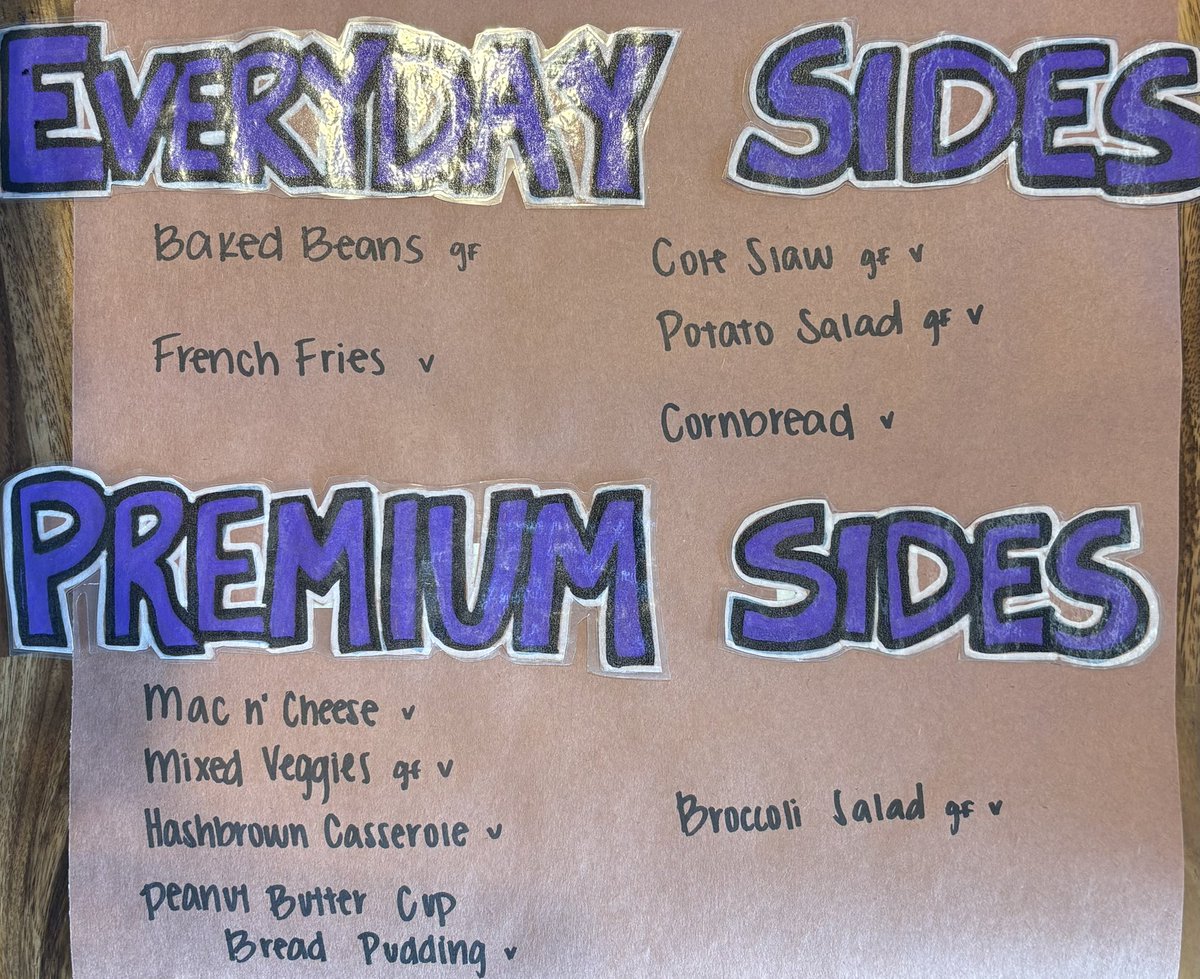 EVERYDAY SIDES
Baked Beans gf
French Fries v
Cole Slaw gf v
Potato Salad gf v
Cornbread v
PREMIUM SIDES
Mac n' Cheese v
Mixed Veggies gf v
Hashbrown Casserole v
Peanut Butter Cup
Bread Pudding v
Broccoli Salad gf v